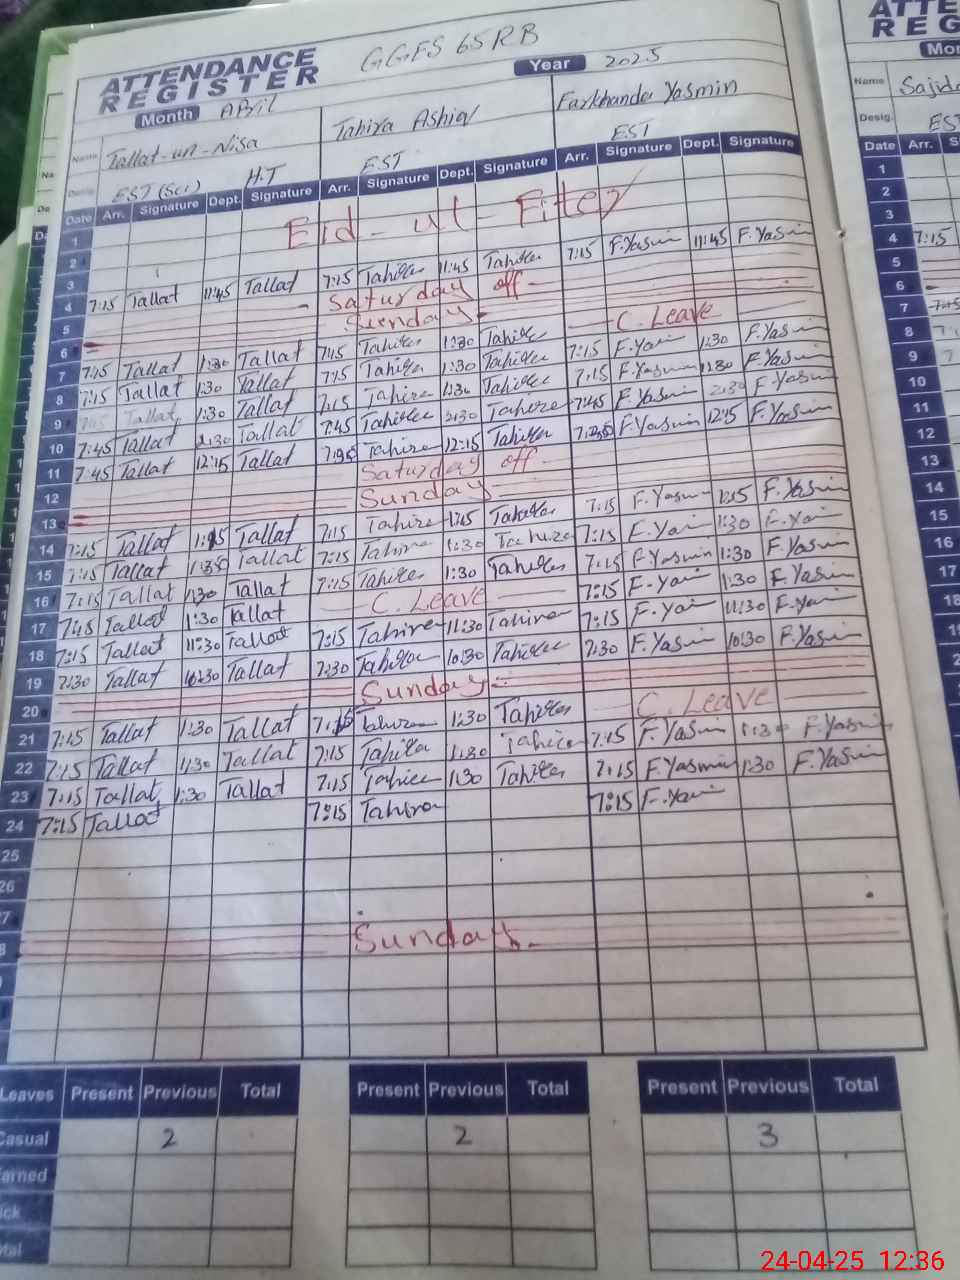 GGES 65RB
ATTENDANCE REGISTER
Month April Year 2025
Name Tallat-un-Nisa Tahira Ashiq Farkhanda Yasmin
EST (Sci) H.T EST EST
Date Arr. Signature Dept. Signature Arr. Signature Dept. Signature Arr. Signature Dept. Signature
1
Eid-ut-Fiter
2
3
4 7:15 Tallat 11:45 Tallat 7:15 Tahira 11:45 Tahira 7:15 F.Yasmin 11:45 F.Yasmin
5 Saturday off
6 Sunday
7 7:15 Tallat 1:30 Tallat 7:15 Tahira 1:30 Tahira C. Leave
8 7:15 Tallat 1:30 Tallat 7:15 Tahira 1:30 Tahira 7:15 F.Yasmin 1:30 F.Yasmin
9 7:15 Tallat 1:30 Tallat 7:15 Tahira 1:30 Tahira 7:15 F.Yasmin 1:30 F.Yasmin
10 7:45 Tallat 2:30 Tallat 7:45 Tahira 2:30 Tahira 7:45 F.Yasmin 2:30 F.Yasmin
11 7:45 Tallat 12:15 Tallat Tahira 12:15 Tahira F.Yasmin 12:15 F.Yasmin
12 Saturday off
13 Sunday
14 7:15 Tallat Tallat 7:15 Tahira 1:15 Tahira 7:15 F.Yasmin 1:15 F.Yasmin
15 7:15 Tallat 1:30 Tallat 7:15 Tahira 1:30 Tahira 7:15 F.Yasmin 1:30 F.Yasmin
16 7:15 Tallat 1:30 Tallat 7:15 Tahira 1:30 Tahira 7:15 F.Yasmin 1:30 F.Yasmin
17 7:45 Tallat 1:30 Tallat C. Leave 7:15 F.Yasmin 1:30 F.Yasmin
18 7:15 Tallat 11:30 Tallat 7:15 Tahira 11:30 Tahira 7:15 F.Yasmin 11:30 F.Yasmin
19 7:30 Tallat 10:30 Tallat 7:30 Tahira 10:30 Tahira 7:30 F.Yasmin 10:30 F.Yasmin
20 Sunday
21 7:15 Tallat 1:30 Tallat 7:15 Tahira 1:30 Tahira C. Leave
22 7:15 Tallat 1:30 Tallat 7:15 Tahira 1:30 Tahira 7:15 F.Yasmin 1:30 F.Yasmin
23 7:15 Tallat 1:30 Tallat 7:15 Tahira 1:30 Tahira 7:15 F.Yasmin 1:30 F.Yasmin
24 7:15 Tallat 7:15 Tahira 7:15 F.Yasmin
25
26
Sunday
Leaves Present Previous Total Present Previous Total Present Previous Total
Casual 2 2 3
ATTE
REG
Mon
Name Sajida
Desig. EST
Date Arr.
1
2
3
4 7:15
5
6
7
8
9
10
11
12
13
14
15
16
17
18
24-04-25 12:36